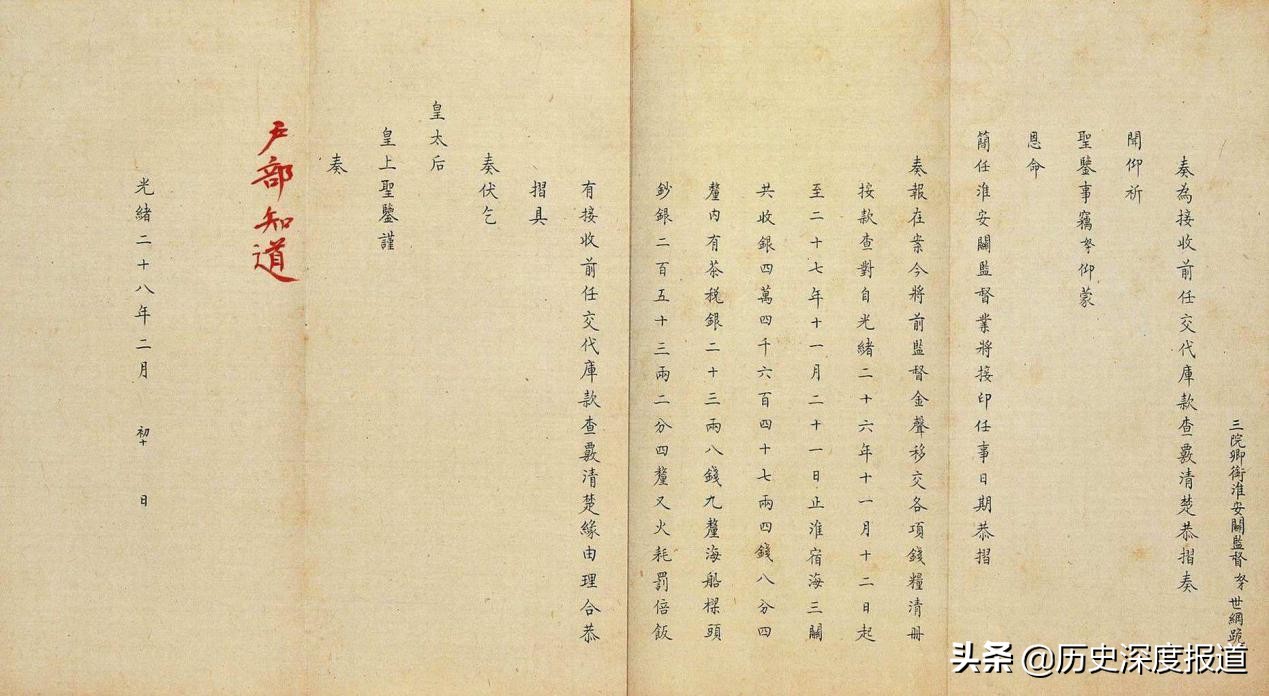 三院卿銜淮安關監督奴才世綱跪
奏為接收前任交代庫款查覈清楚恭摺奏
聞仰祈
聖鑒事竊奴才仰蒙
恩命
簡任淮安關監督業將接印任事日期恭摺
奏報在案今將前監督金聲移交各項錢糧清冊
按款查對自光緒二十六年十一月十二日起
至二十七年十一月二十一日止淮宿海三關
共收銀四萬四千六百四十七兩四錢八分四
釐內有茶稅銀二十三兩八錢九釐海船樑頭
鈔銀二百五十三兩二分四釐又火耗罰倍飯
有接收前任交代庫款查覈清楚緣由理合恭
摺具
奏伏乞
皇太后
皇上聖鑒謹
奏
戶部知道
光緒二十八年二月初十日
头条 @历史深度报道